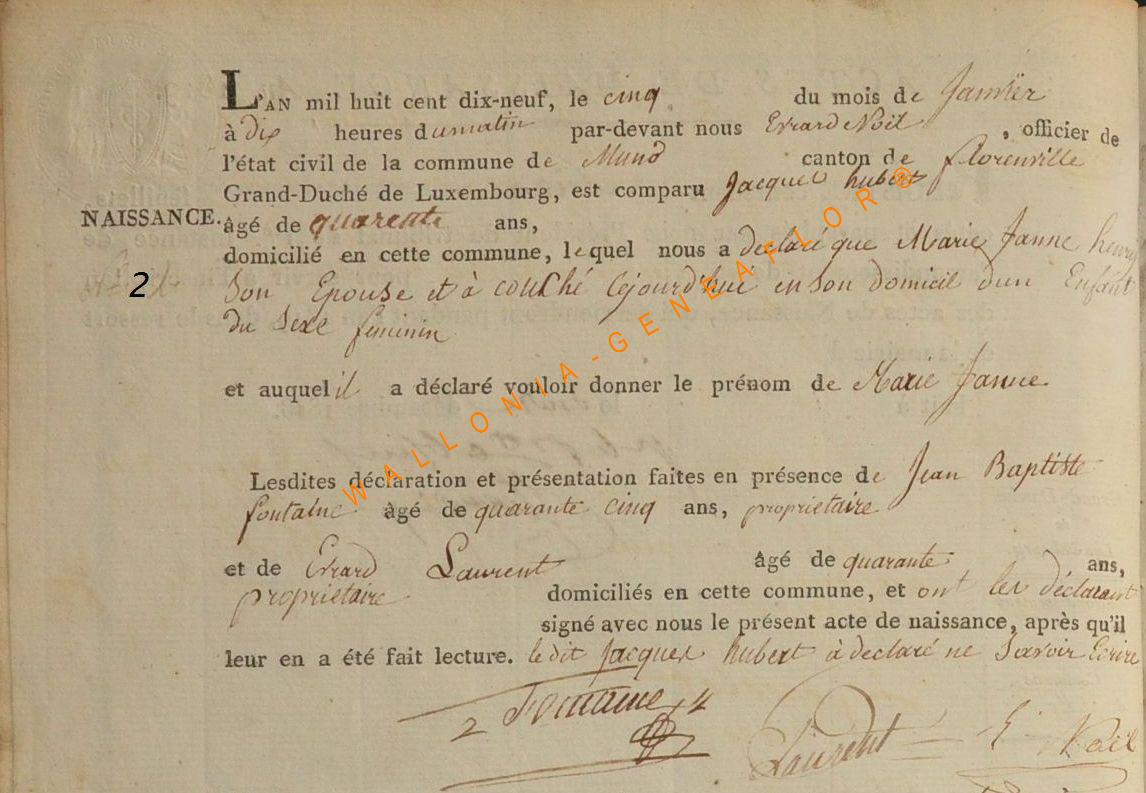 L'AN mil huit cent dix-neuf, le cinq du mois de Janvier
à dix heures du matin par-devant nous Evrard Noël, officier de
l'état civil de la commune de Muno canton de florenville
Grand-Duché de Luxembourg, est comparu Jacques hubert
NAISSANCE. âgé de quarente ans,
domicilié en cette commune, lequel nous a declaré que Marie Janne henry
2 Son Epouse et à couché cejourd'hui en son domicil d'un Enfant
du Sexe feminin
et auquel il a déclaré vouloir donner le prénom de Marie Janne
Lesdites déclaration et présentation faites en présence de Jean Baptiste
fontaine âgé de quarante cinq ans, proprietaire
et de Evrard Laurent âgé de quarante ans,
proprietaire domiciliés en cette commune, et ont les déclarant
signé avec nous le présent acte de naissance, après qu'il
leur en a été fait lecture. le dit Jacques hubert à declaré ne Savoir Ecrire
Fontaine
Laurent E. Noël
WALLONIA-GENEAFLOR®